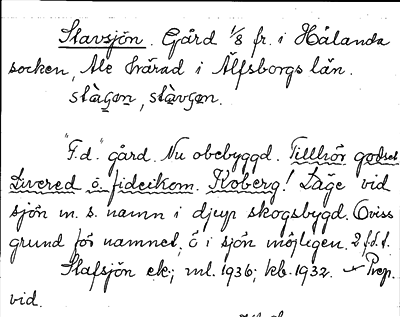 Stavsjön. Gård 1/8 fr. i Hålanda
socken, Ale härad i Älfsborgs län.
stàgen, stàvgen.
"F.d." gård. Nu obebyggd. Tillhör godset
Livered o. fideikom. Koberg! Läge vid
sjön m. s. namn i djup skogsbygd. Oviss
grund för namnet, ö i sjön möjligen. 2 f.d. t.
Stafsjön ek; ml. 1936; kb. 1932. Prep.
vid.